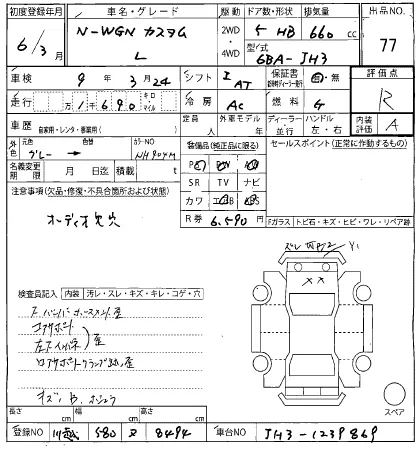 初度登録年月 車名・グレード 駆動 ドア数・形状 排気量 出品NO.
6/3月 N-WGN カスタム L 2WD・4WD 5 HB 660 cc 77
型式 6BA-JH3
車検 9年 3月 24 シフト I AT 保証書 有・無 評価点
走行 1万 690 キロ マイル 冷房 AC 燃料 G R
車歴 自家用・レンタ・事業用( ) 定員 人 外車モデル 年 ディーラー 並行 ハンドル 左・右 内装評価 A
外色 元色 グレー → 色替 カラーNO NH904M 装備品(純正品に限る) セールスポイント(正常に作動するもの)
名義変更期限 月 日迄 積載 t
SR TV ナビ
注意事項(欠品・修復・不具合箇所および状態) カワ
R券 6,590円 Fガラス トビ石・キズ・ヒビ・ワレ・リペア跡
オーディオ欠 穴
Y1
検査員記入 内装 汚レ・スレ・キズ・キレ・コゲ・穴
コアサポート
スペア
長さ cm 幅 cm 高さ cm
登録NO 川越 580 ヌ 8494 車台NO JH3-1239869